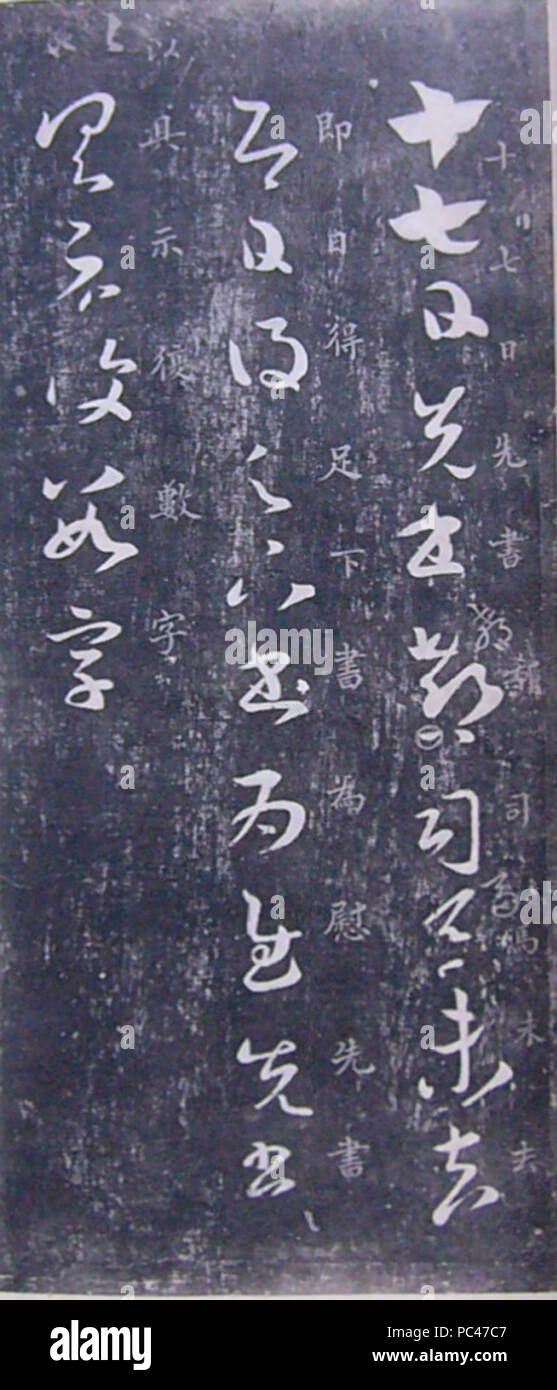 十七日先書郗司馬未去
十七日先書郗司馬未去
即日得足下書為慰先書
即日得足下書為慰先書
以具示復數字
具示復數字
alamy
alamy
Image ID: PC47C7
www.alamy.com